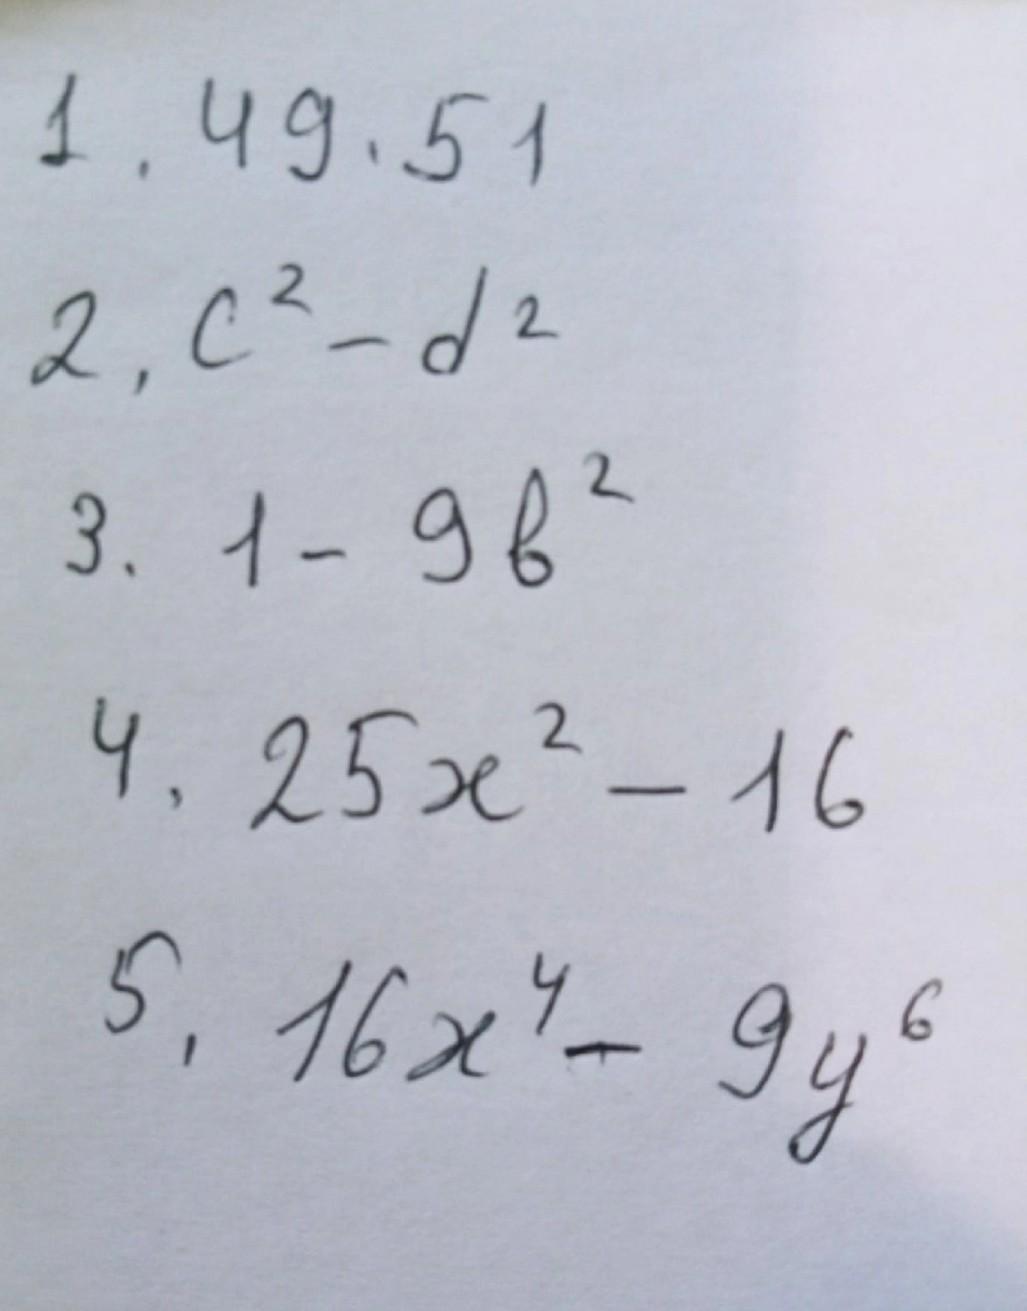 1. 49·51
2. c² - d²
3. 1 - 9b²
4. 25x² - 16
5. 16x⁴ - 9y⁶